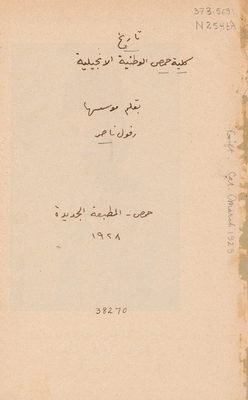 373.5691
N254tA
تاريخ
كلية حمص الوطنية الانجيلية
بقلم مؤسسها
رفول ناصر
حمص - المطبعة الجديدة
١٩٢٨
38270